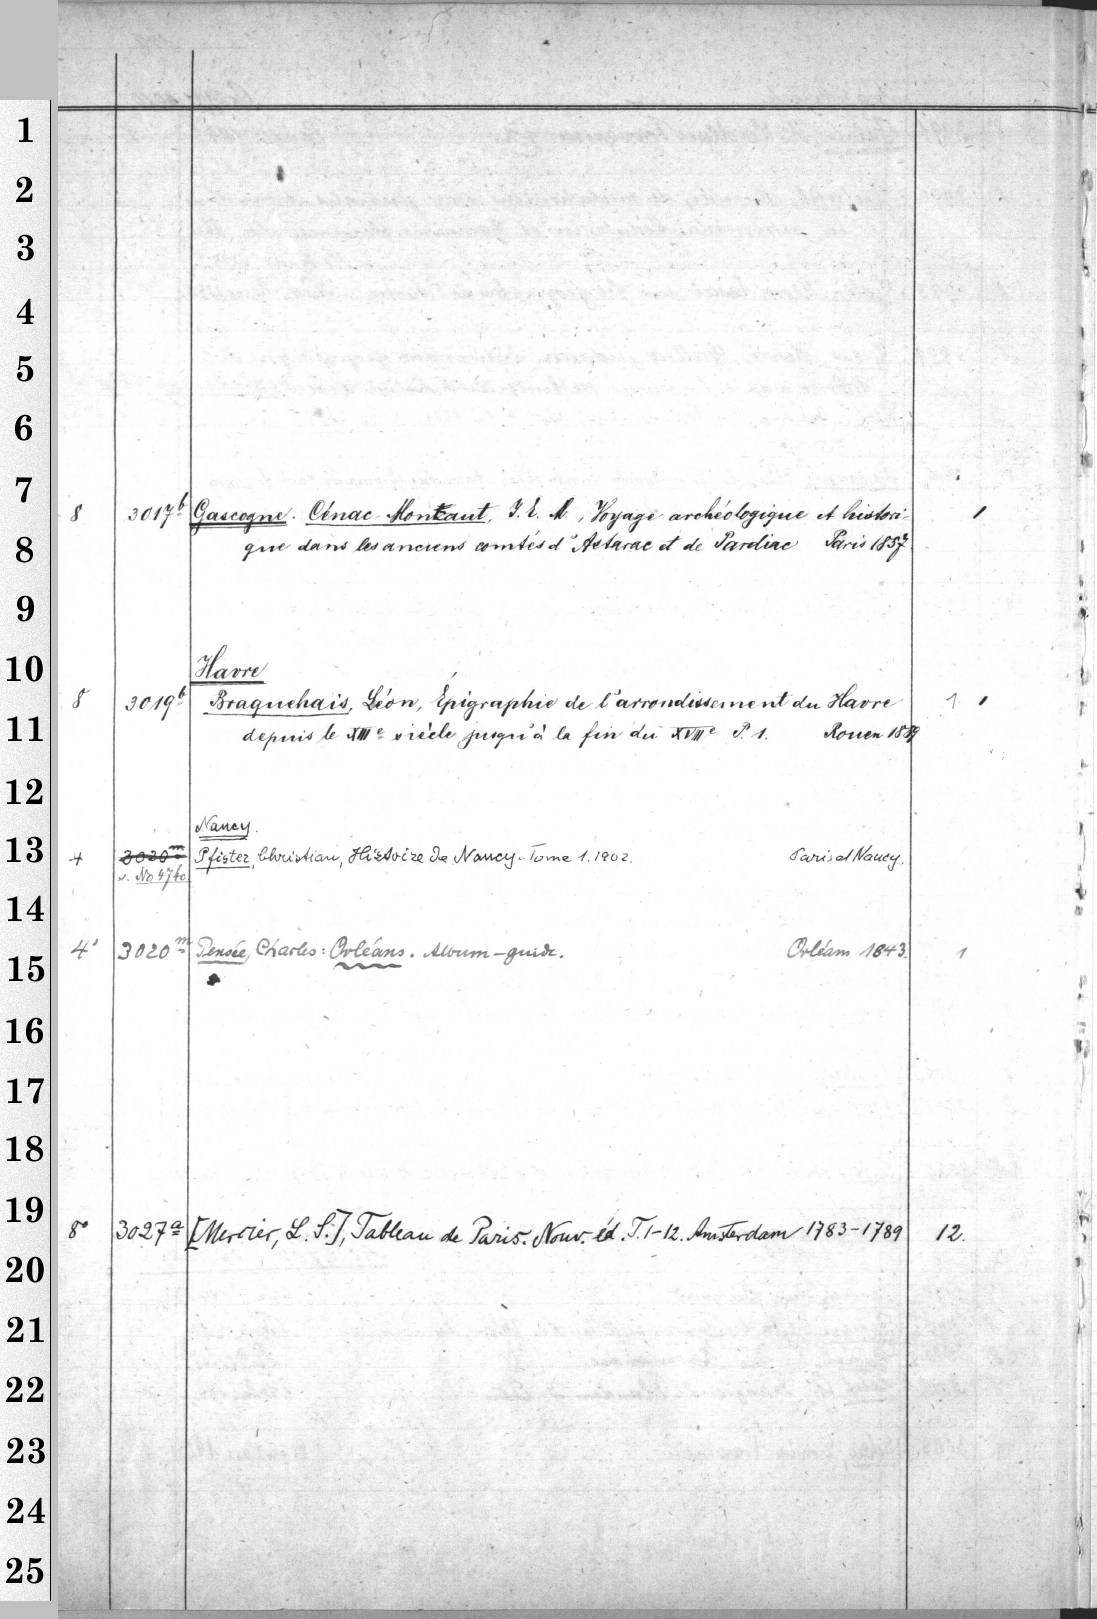 1
2
3
4
5
6
7
8 3017b Gascogne. Cénac-Montcaut, J. E. M., Voyage archéologique et histori- 1
8
que dans les anciens comtés d'Astarac et de Pardiac Paris 1857.
9
10
Havre
8 3019b Braquehais, Léon, Épigraphie de l'arrondissement du Havre 1
11
depuis le XIIIe siècle jusqu'à la fin du XVIIe P. 1. Rouen 1889
12
Nancy.
13
4 3020m Pfister, Christian, Histoire de Nancy. Tome 1. 1902. Paris et Nancy.
s. No 4740.
14
4° 3020m Pensée, Charles: Orléans. Album-guide. Orléans 1843. 1
15
16
17
18
19
8° 3027a [Mercier, L. S.], Tableau de Paris. Nouv. éd. T. 1-12. Amsterdam 1783-1789 12.
20
21
22
23
24
25